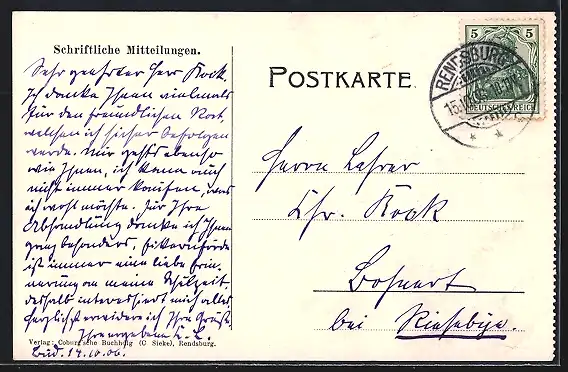 Schriftliche Mitteilungen.
Sehr geehrter Herr Kock.
Ich danke Ihnen vielmals
für den freundlichen Rat,
welchen ich sicher befolgen
werde. Mir geht's ebenso
wie Ihnen, ich kann auch
nicht immer kaufen, was
ich wohl möchte. Für Ihre
Abhandlung danke ich Ihnen
ganz besonders, Eckernförde
ist immer eine liebe Erin-
nerung an meine Schulzeit,
deshalb interessiert mich alles
herzlichst erwidere ich Ihre Grüße
Ihr ergebener
Verlag: Coburg'sche Buchhdlg (C Sieke), Rendsburg.
14.10.06.
POSTKARTE.
5 5
RENDSBURG
DEUTSCHES REICH
Herrn Lehrer
Chr. Kock
bei Rieseby.